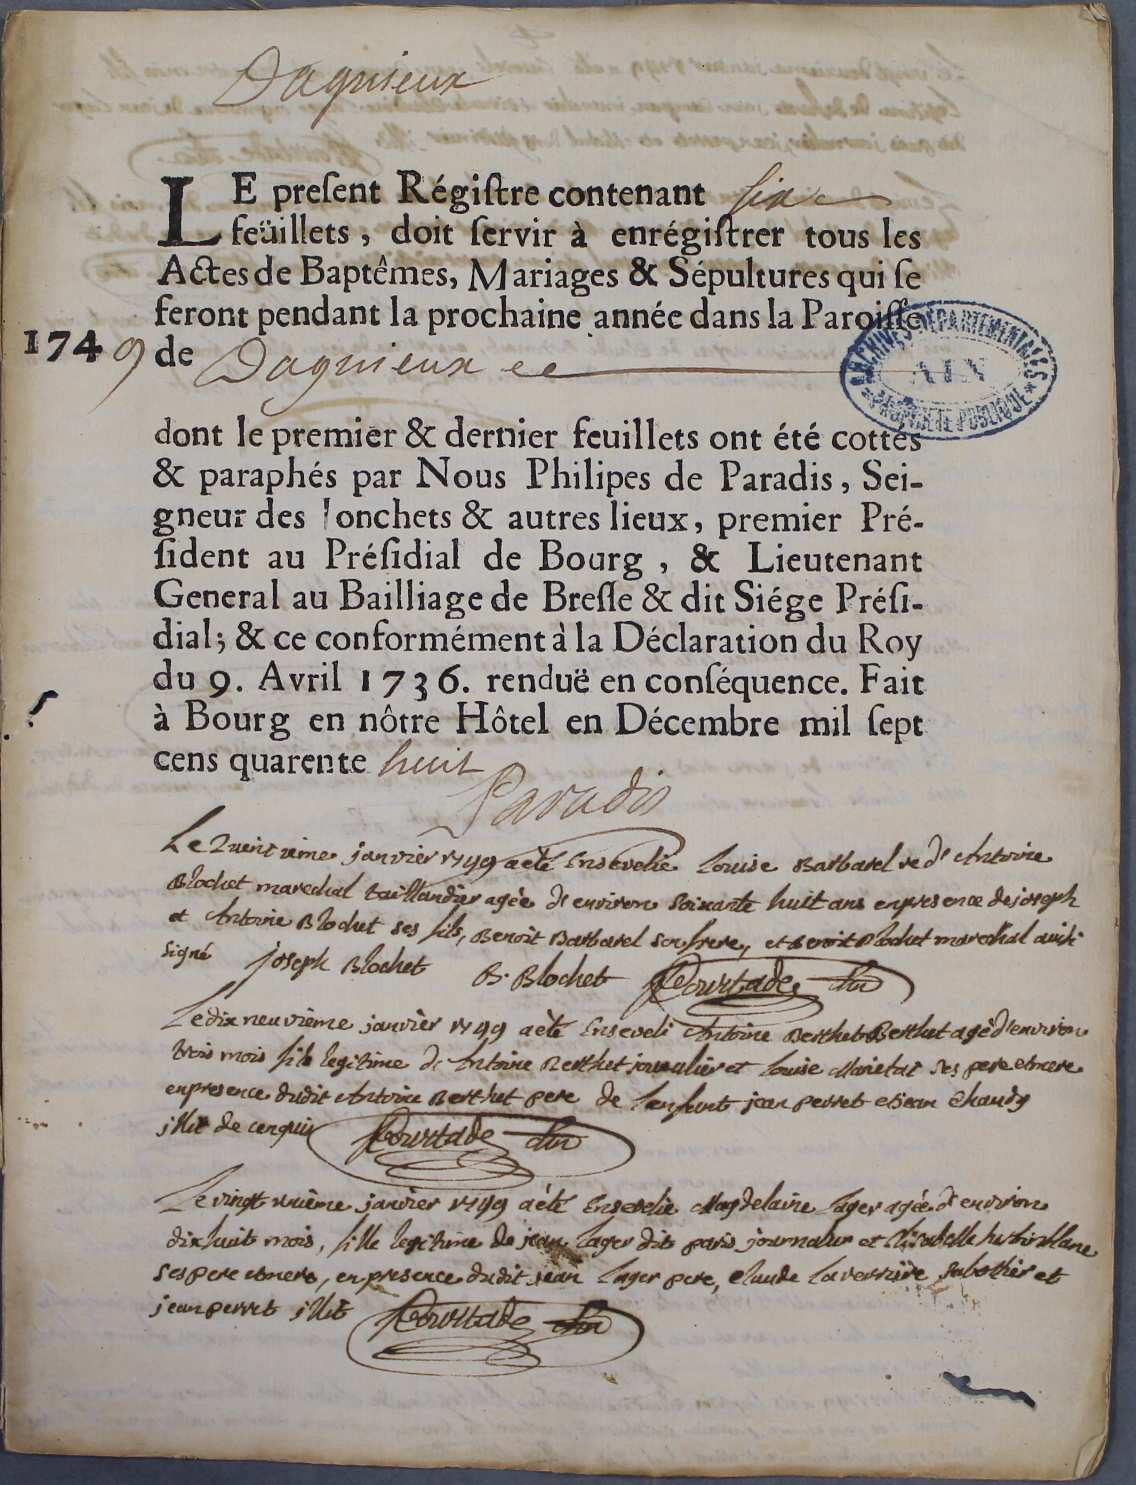 Dagnieux
LE preſent Régiſtre contenant six
feüillets, doit ſervir à enrégiſtrer tous les
Actes de Baptêmes, Mariages & Sépultures qui ſe
feront pendant la prochaine année dans la Paroiſſe
1749 de Dagnieux
ARCHIVES DÉPARTEMENTALES
AIN
PROPRIÉTÉ PUBLIQUE
dont le premier & dernier feuillets ont été cottés
& paraphés par Nous Philipes de Paradis, Sei-
gneur des Jonchets & autres lieux, premier Pré-
ſident au Préſidial de Bourg, & Lieutenant
General au Bailliage de Breſſe & dit Siége Préſi-
dial; & ce conformément à la Déclaration du Roy
du 9. Avril 1736. renduë en conſéquence. Fait
à Bourg en nôtre Hôtel en Décembre mil ſept
cens quarente huit
Paradis
Le janvier 1749 a été Ensevelie Louise Barbarel ve d'Antoine
Blochet marechal taillandier agée d'environ soixante huit ans en presence de joseph
et Antoine Blochet ses fils, Benoit Barbarel son frere, et Benoit Blochet marechal
signé joseph Blochet B. Blochet Courtade
Le dix neuvième janvier 1749 a été Enseveli Antoine Berthet Berthet agé d'environ
trois mois fils legitime d'Antoine Berthet journalier et Louise Marietat ses pere et mere
en presence dudit Antoine Berthet pere de l'enfant jean perret et jean Chaudy
illit de ce requis Courtade
Le vingt janvier 1749 a été Ensevelie Magdelaine Lager agée d'environ
dix huit mois, fille legitime de jean Lager dit paris journalier et
ses pere et mere, en presence dudit jean Lager pere, Claude Laverriere sabotier et
jean perret illit Courtade